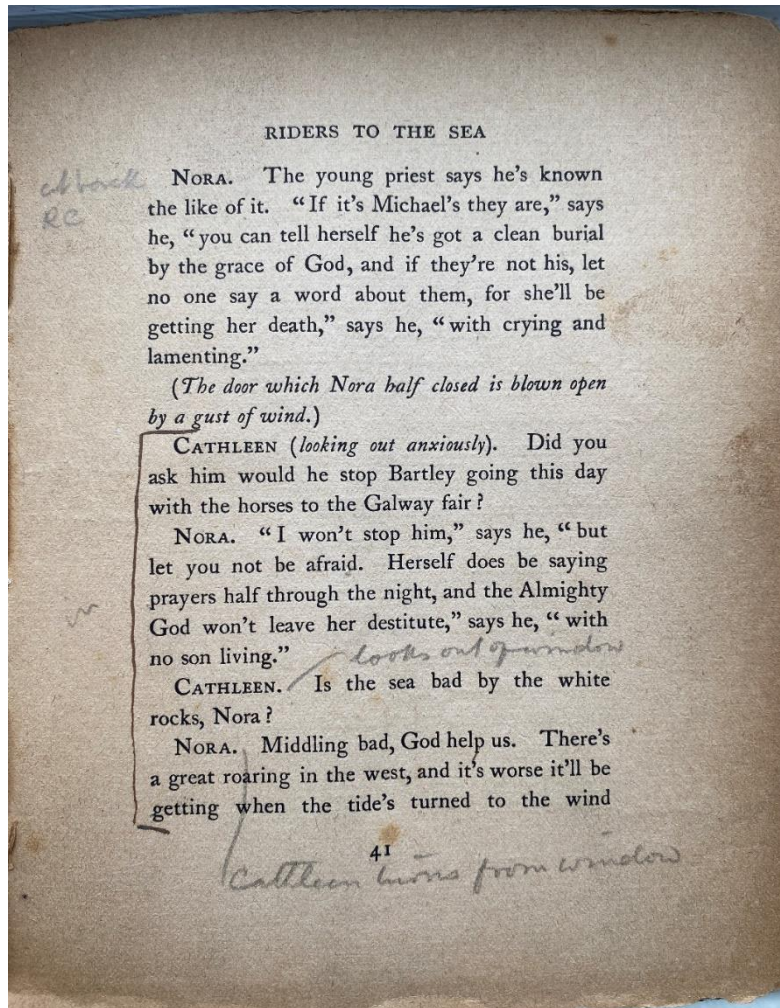 RIDERS TO THE SEA
at back
RC
NORA. The young priest says he's known
the like of it. “If it's Michael's they are,” says
he, “you can tell herself he's got a clean burial
by the grace of God, and if they're not his, let
no one say a word about them, for she'll be
getting her death,” says he, “with crying and
lamenting.”
(The door which Nora half closed is blown open
by a gust of wind.)
CATHLEEN (looking out anxiously). Did you
ask him would he stop Bartley going this day
with the horses to the Galway fair?
NORA. “I won't stop him,” says he, “but
let you not be afraid. Herself does be saying
prayers half through the night, and the Almighty
God won't leave her destitute,” says he, “with
no son living.”
looks out of window
CATHLEEN. Is the sea bad by the white
rocks, Nora?
NORA. Middling bad, God help us. There's
a great roaring in the west, and it's worse it'll be
getting when the tide's turned to the wind
41
Cathleen turns from window